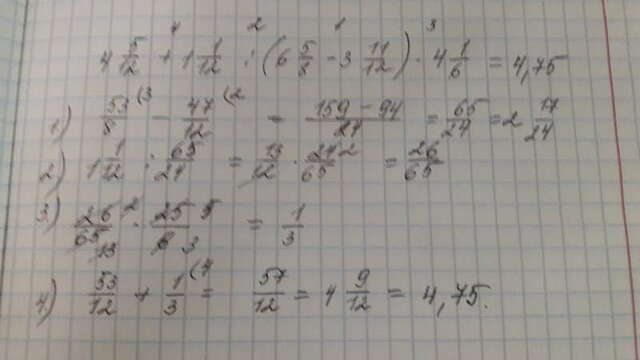 4 2 1 3
4 5/12 + 1 1/12 : (6 5/8 - 3 11/12) · 4 1/6 = 4,75
1) 53/8 (3 - 47/12 (2 = 159 - 94/24 = 65/24 = 2 17/24
2) 1 1/12 : 65/24 = 13/12 · 24 2/65 = 26/65
3) 26 2/65 13 · 25 5/6 3 = 1/3
4) 53/12 + 1/3 (4 = 57/12 = 4 9/12 = 4,75.